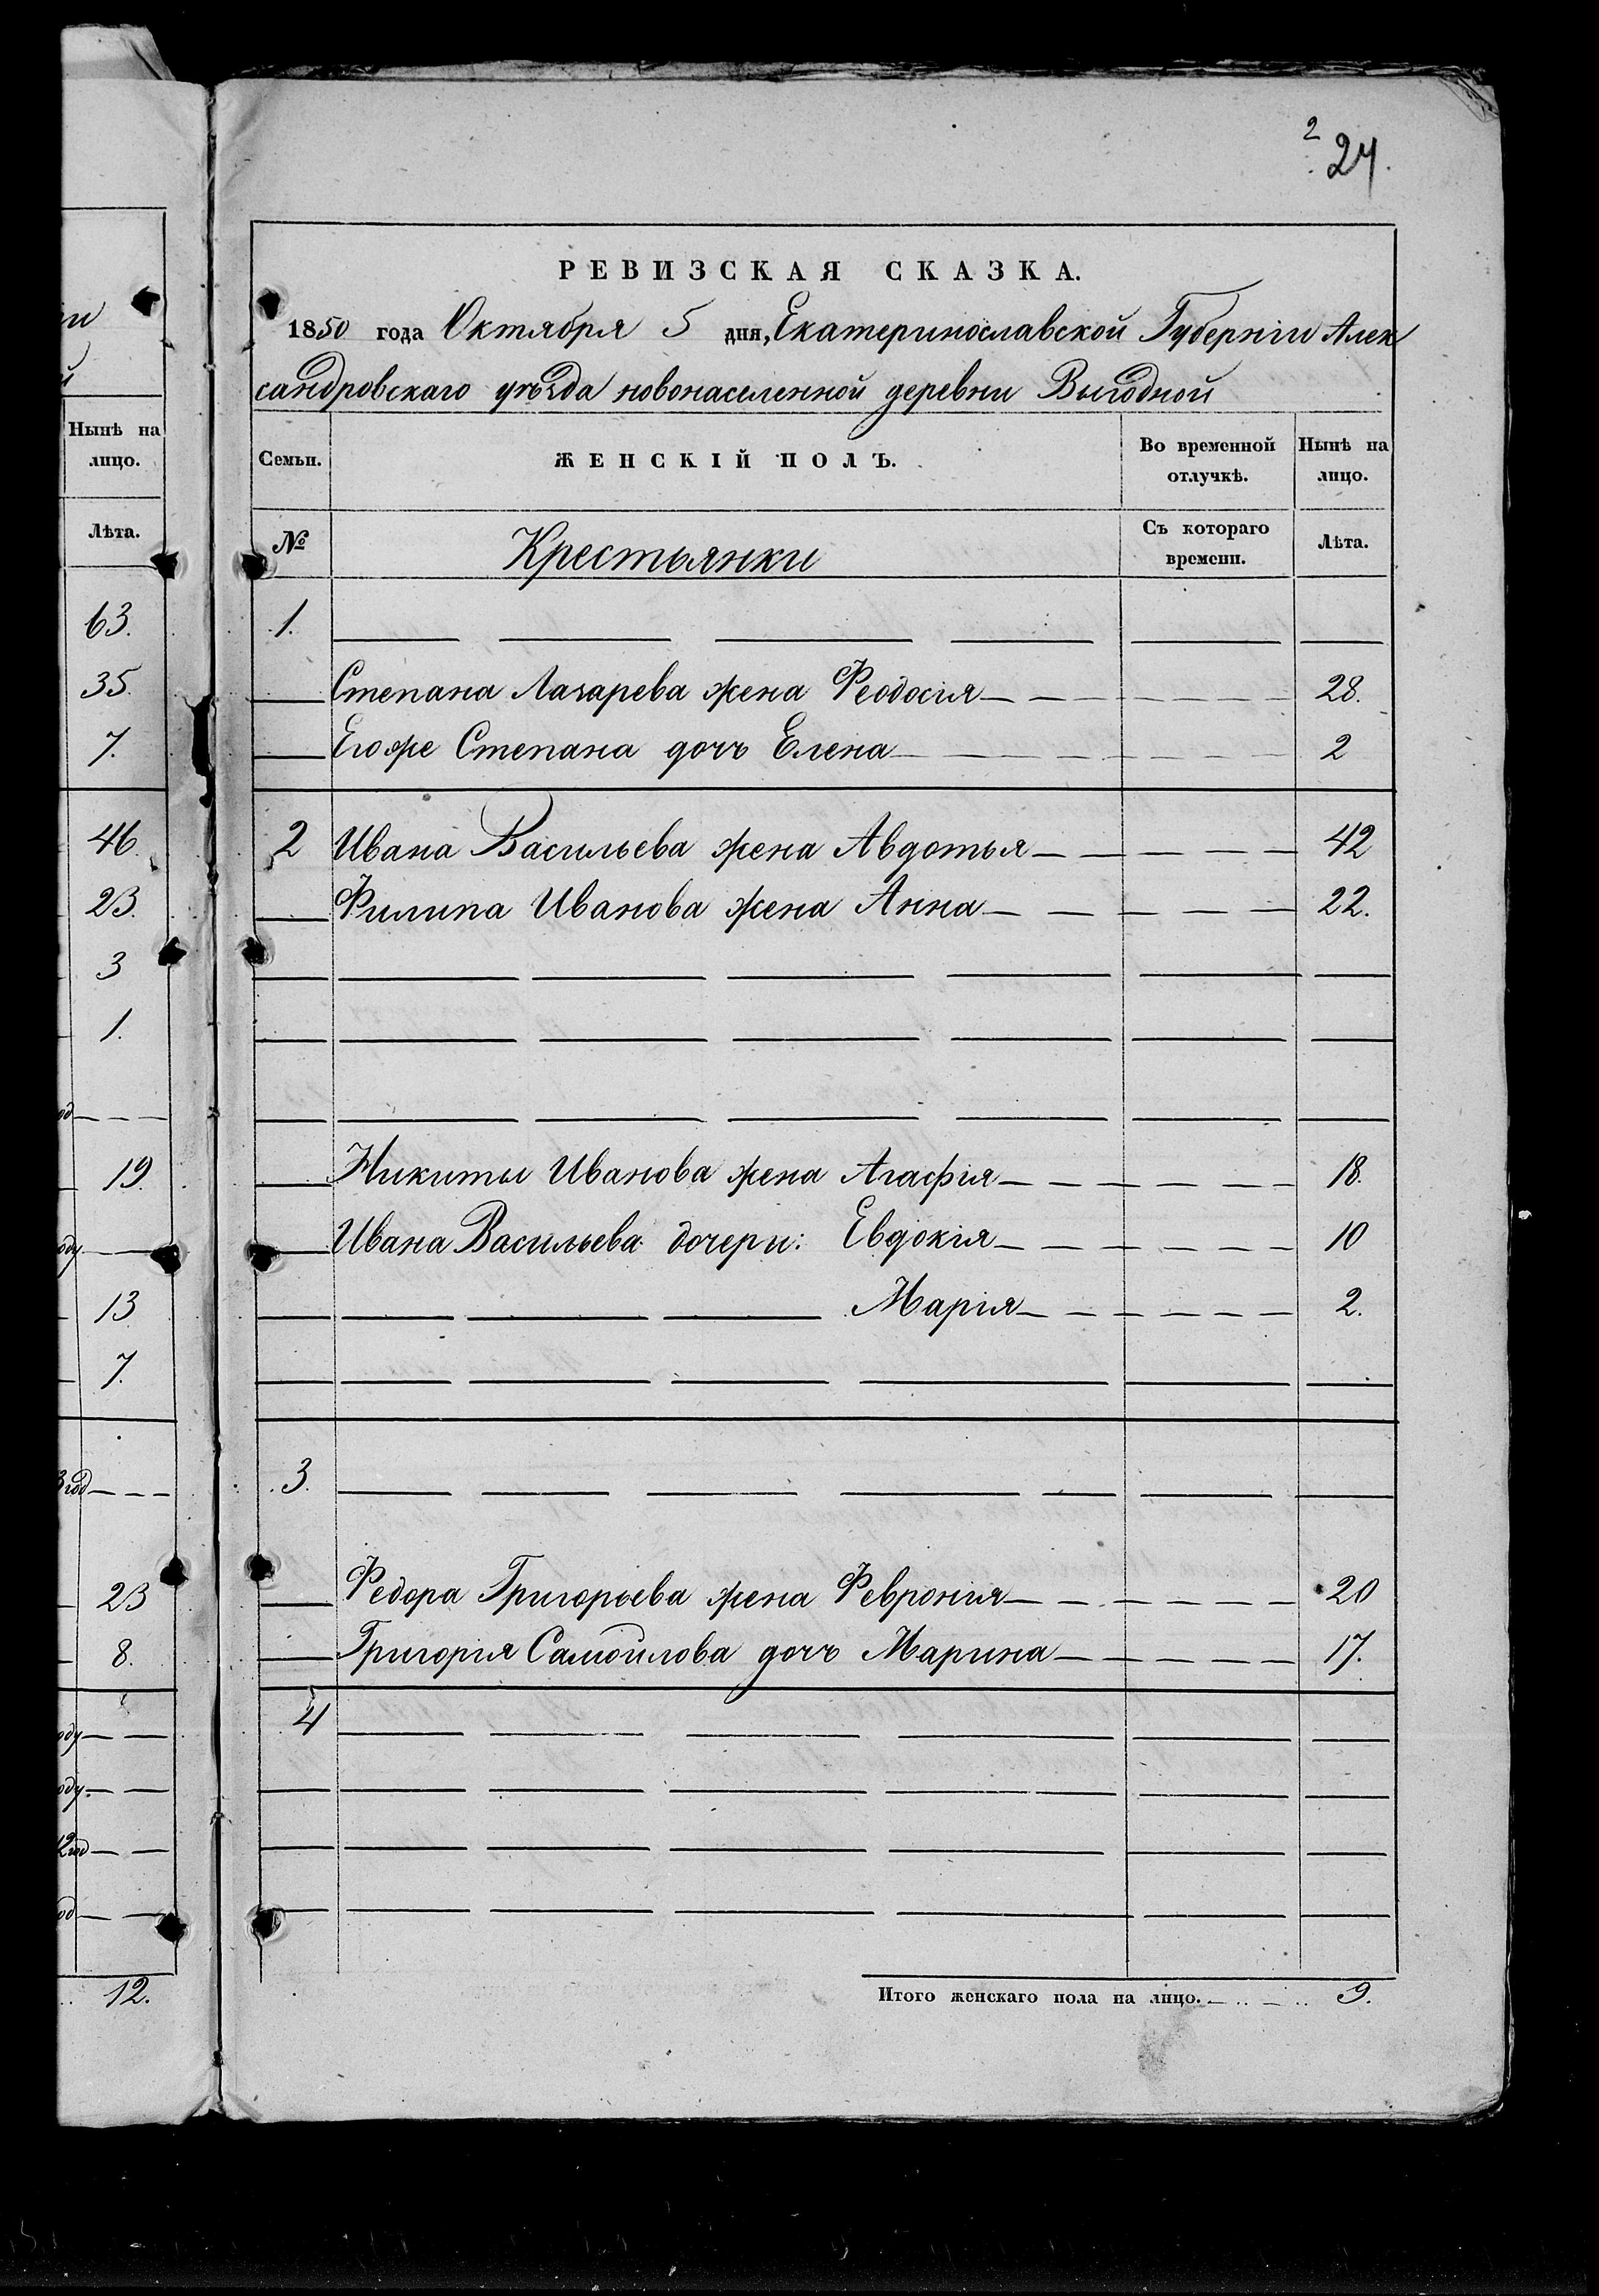 2
24.
РЕВИЗСКАЯ СКАЗКА.
1850 года Октября 5 дня, Екатеринославской Губернiи Алек
сандровскаго уѣзда новонаселенной деревни Выгодной
Нынѣ на
лицо.
Лѣта.
63.
35.
7.
46.
23.
3
1.
од
19.
оду
13
7.
3 год
23
8.
оду
оду.
12 год
од
12.
Семьи. ЖЕНСКIЙ ПОЛЪ. Во временной отлучкѣ. Нынѣ на лицо.
№ Крестьянки Съ котораго времени. Лѣта.
1.
Степана Лазарева жена Феодосiя 28.
Егоже Степана дочь Елена 2
2 Ивана Васильева жена Авдотья 42
Филипа Иванова жена Анна 22.
Никиты Иванова жена Агафiя 18.
Ивана Васильева дочери: Евдокiя 10
Марiя 2.
3.
Федора Григорьева жена Февронiя 20
Григорiя Самойлова дочь Марина 17.
4
Итого женскаго пола на лицо. 9.